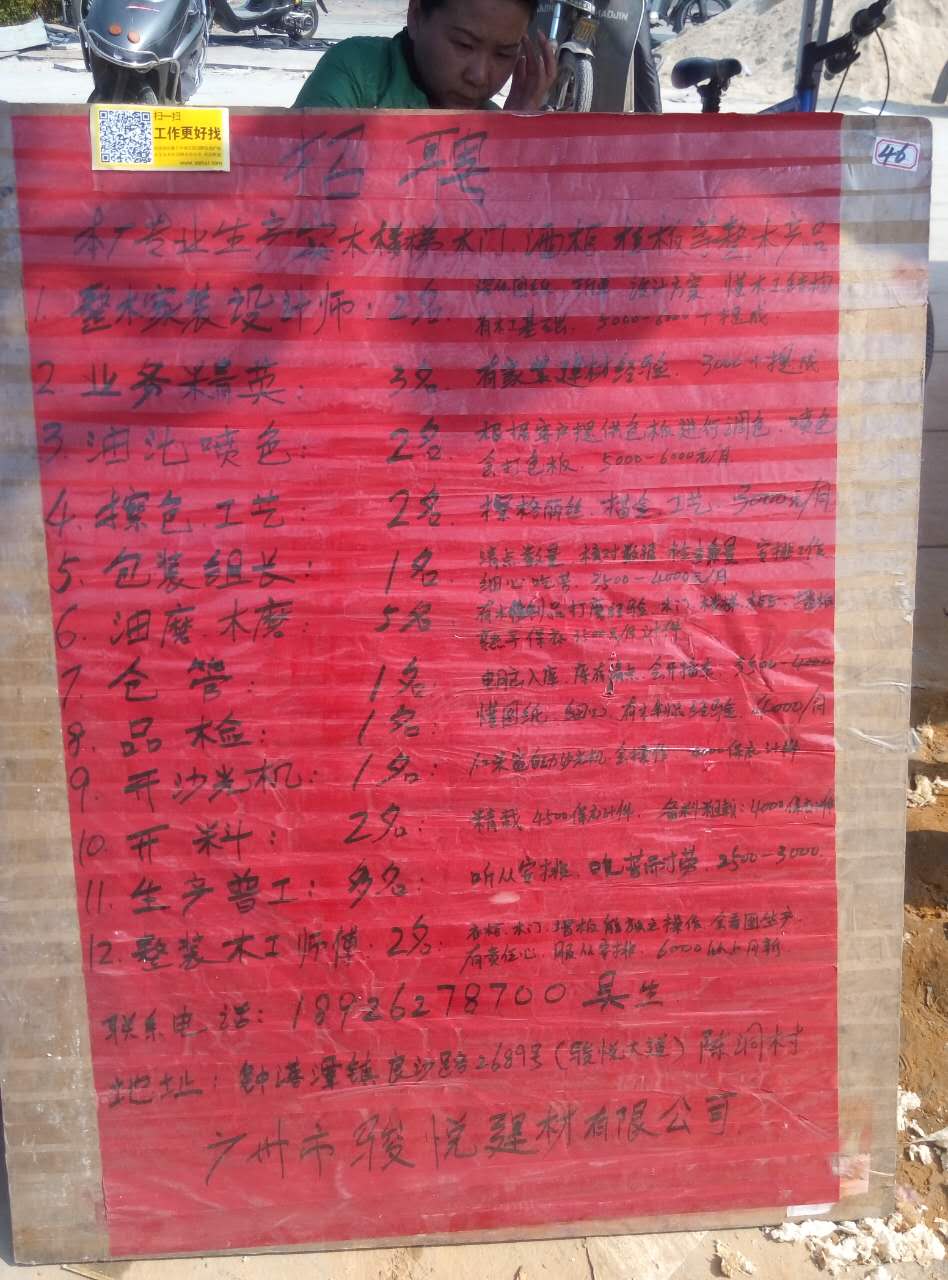 扫一扫
工作更好找
46
招聘
本厂专业生产实木楼梯 木门 酒柜 墙板等整木产品
1. 整木家装设计师: 2名 深化图纸 设计方案 懂木工结构
有木工基础. 5000-6000+提成
2. 业务精英: 3名 有家装建材经验. 3000+提成
3. 油沈喷色: 2名 根据客户提供色板进行调色、喷色
会打色板. 5000-6000元/月
4. 擦色工艺: 2名. 擦格丽丝、描金、工艺. 5000元/月
5. 包装组长: 1名 清点数量 核对数据 检查质量 安排工作
细心吃苦. 2500-4000元/月
6. 油磨.木磨: 5名. 有木制品打磨经验 木门. 楼梯. 墙板
熟手保存 3500元/月 计件
7. 仓管: 1名 出入库 库存清点. -4000
8. 品检: 1名: 懂图纸. 细心. 有木制品经验. 4000/月
9. 开沙光机: 1名: 红采蓝自动沙光机 会操作 保底计件
10. 开料: 2名: 精裁 4500保底计件. 备料粗裁: 4000保底计件
11. 生产普工: 多名: 听从安排. 吃苦耐劳. 2500-3000.
12. 整装木工师傅: 2名: 衣柜. 木门. 墙板能独立操作. 会看图生产.
有责任心. 服从安排. 6000以上月薪.
联系电话: 18926278700 吴生
地址: 钟落潭镇良沙路2689号(骏悦大道)陈洞村
广州市骏悦建材有限公司